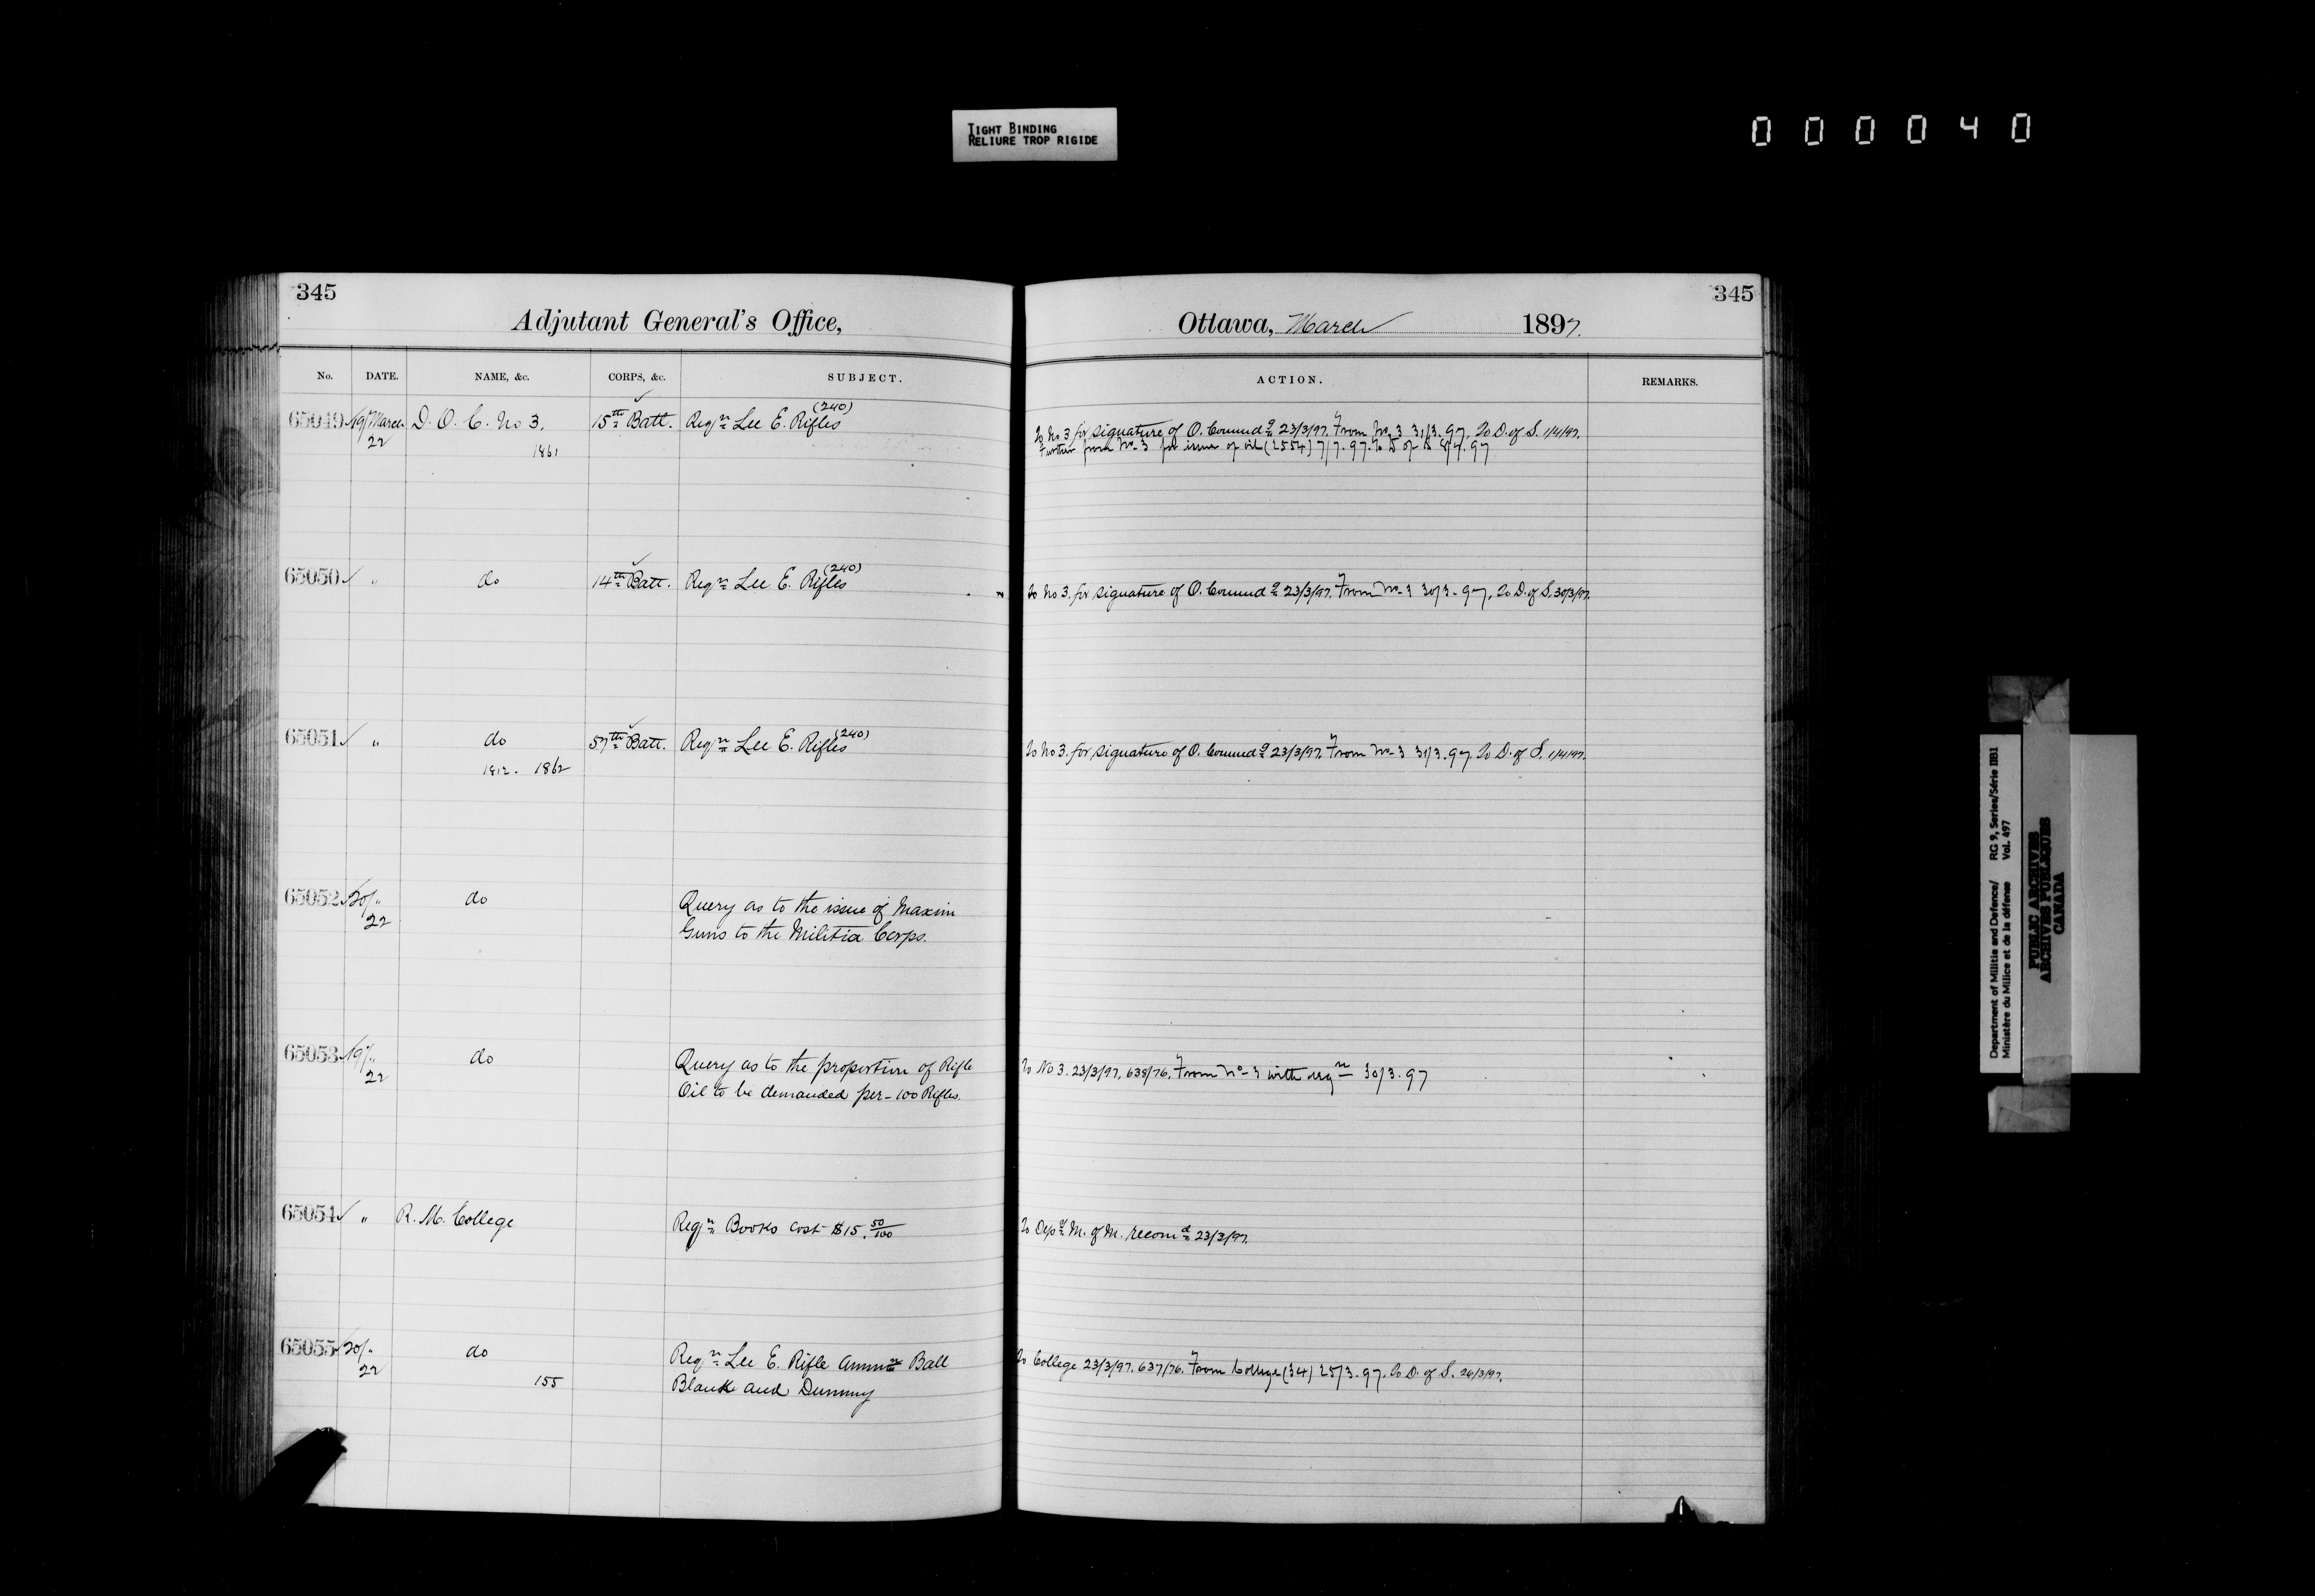 TIGHT BINDING
RELIURE TROP RIGIDE
000040
345
Adjutant General's Office,
No. DATE. NAME, &c. CORPS, &c. SUBJECT.
65049 19/March 22 D. O. C. No 3. 15th Batt. Reqn Lee E. Rifles (240)
1861
65050 " do 14th Batt. Reqn Lee E. Rifles (240)
65051 " do 57th Batt. Reqn Lee E. Rifles (240)
1812. 1862
65052 20/" 22 do Query as to the issue of Maxim
Guns to the Militia Corps.
65053 19/" 22 do Query as to the proportion of Rifle
Oil to be demanded per 100 Rifles.
65054 " R. M. College Reqn Books cost $15. 50/100
65055 20/" 22 do Reqn Lee E. Rifle Ammn Ball
155 Blank and Dummy
345
Ottawa, March 1897.
ACTION. REMARKS.
To No 3 for signature of O. Commdg 23/3/97. From No 3 31/3.97. To D. of S. 1/4/97.
Further from No 3 for issue of oil (2554) 7/7.97. To D of S 8/7.97
To No 3. for signature of O. Commdg 23/3/97. From No 3 30/3.97. To D. of S. 30/3/97.
To No 3. for signature of O. Commdg 23/3/97. From No 3 31/3.97. To D. of S. 1/4/97.
To No 3. 23/3/97. 638/76. From No 3 with reqn 30/3.97
To Depy M. of M. recomd 23/3/97.
To College 23/3/97. 637/76. From College (34) 25/3.97. To D. of S. 26/3/97.
Department of Militia and Defence/ RG 9, Series/Série IIB1
Ministère du Milice et de la défense Vol. 497
PUBLIC ARCHIVES
ARCHIVES PUBLIQUES
CANADA